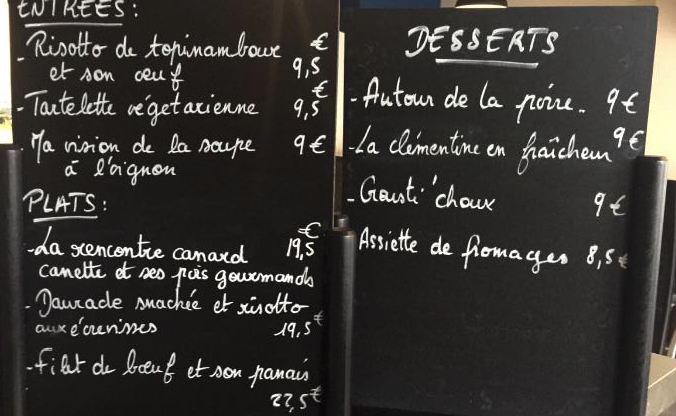 ENTRÉES :
- Risotto de topinambour €
et son œuf 9,5
- Tartelette végétarienne 9,5 €
- Ma vision de la soupe 9 €
à l'oignon
PLATS :
- La rencontre canard 19,5 €
canette et ses pois gourmands
- Daurade snackée et risotto
aux écrevisses 19,5 €
- Filet de bœuf et son panais
22,5 €
DESSERTS
- Autour de la poire. 9 €
- La clémentine en fraîcheur 9 €
- Gousti'choux 9 €
Assiette de fromages 8,5 €